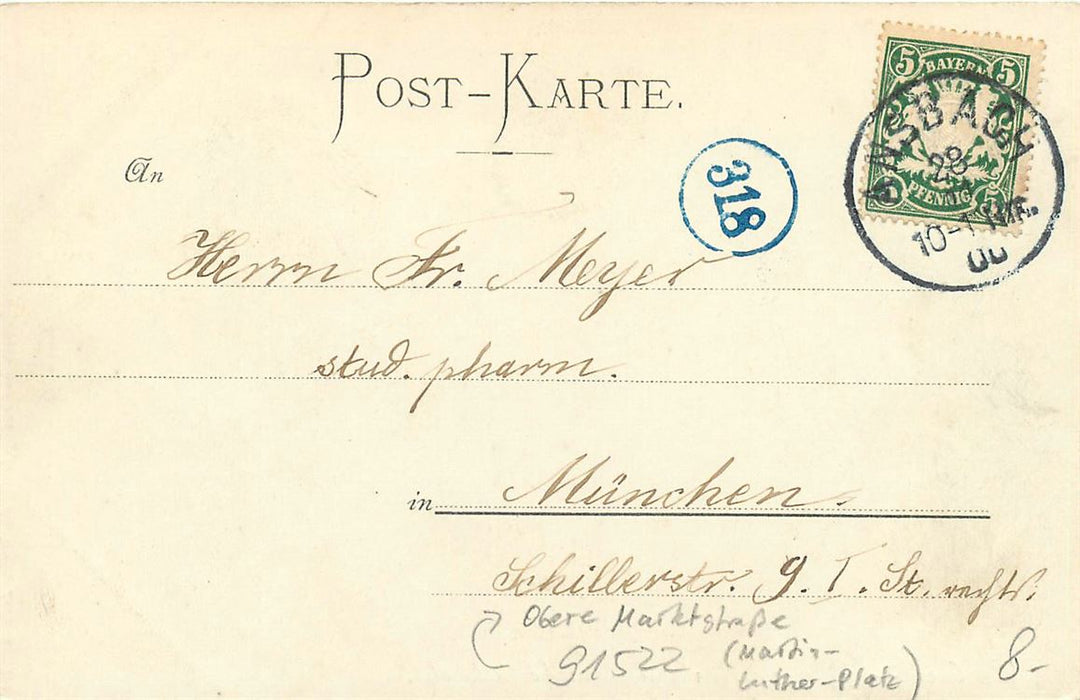 POST-KARTE.
5 BAYERN 5
PFENNIG 5
ANSBACH
28
10-1 Mi
00
318
An
Herrn Fr. Meyer
stud. pharm.
in München.
Schillerstr. 9. I. St. rechts.
Obere Marktstraße
91522 (Martin-
Luther-Platz)
8-